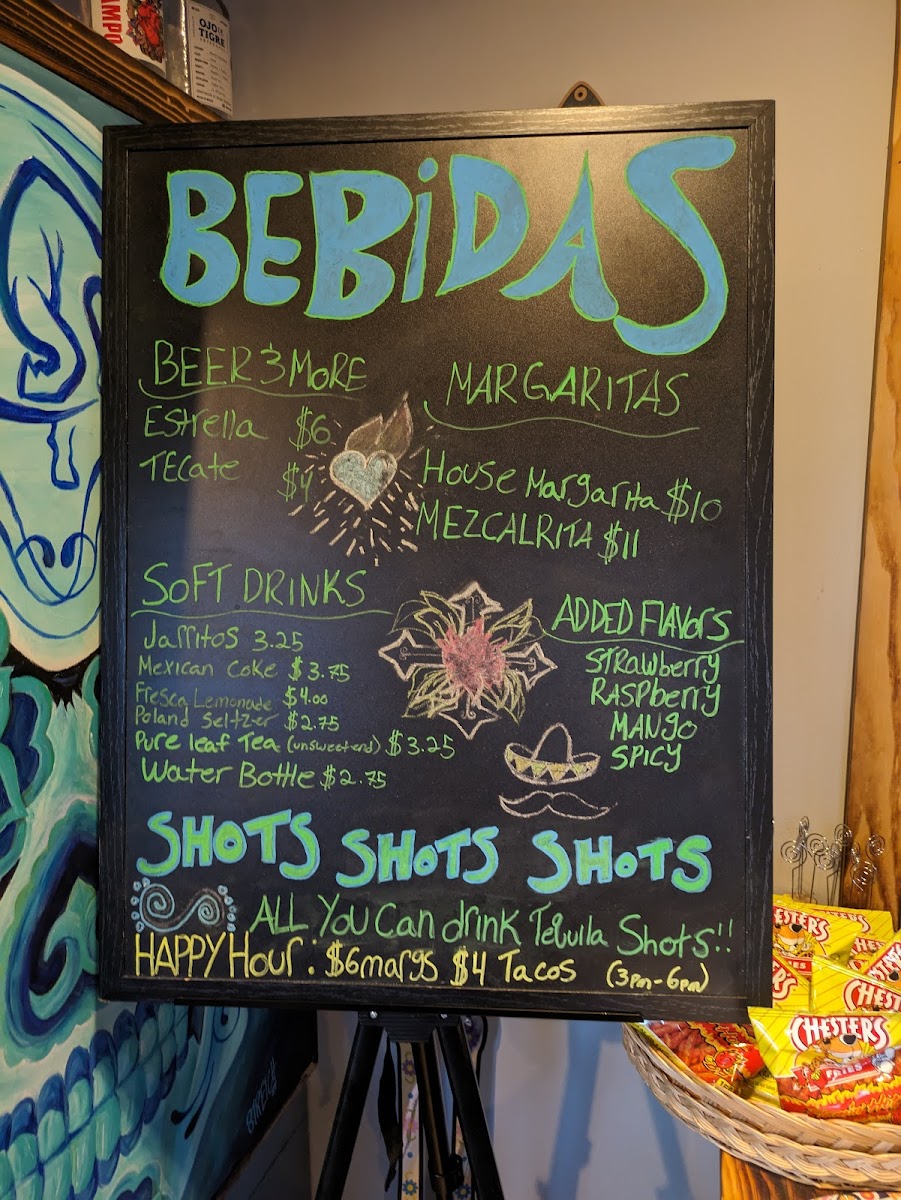 AMPO
OJO DE
TIGRE
BEBiDAS
BEER & MORE
Estrella $6
TECate $4
MARGARITAS
House Margarita $10
MEZCALRITA $11
SOFT DRINKS
Jarritos 3.25
Mexican Coke $3.75
Fresca Lemonade $4.00
Poland Seltzer $2.75
Pure leaf Tea (unsweetend) $3.25
Water Bottle $2.75
ADDED FlAVors
STRAwberry
RASPberry
MANgo
SPICY
SHOTS SHOTS SHOTS
ALL You Can drink Tequila Shots!!
HAPPY Hour: $6 margs $4 Tacos (3pm-6pm)
CHESTERS
CHESTERS
CHESTERS
FRIES